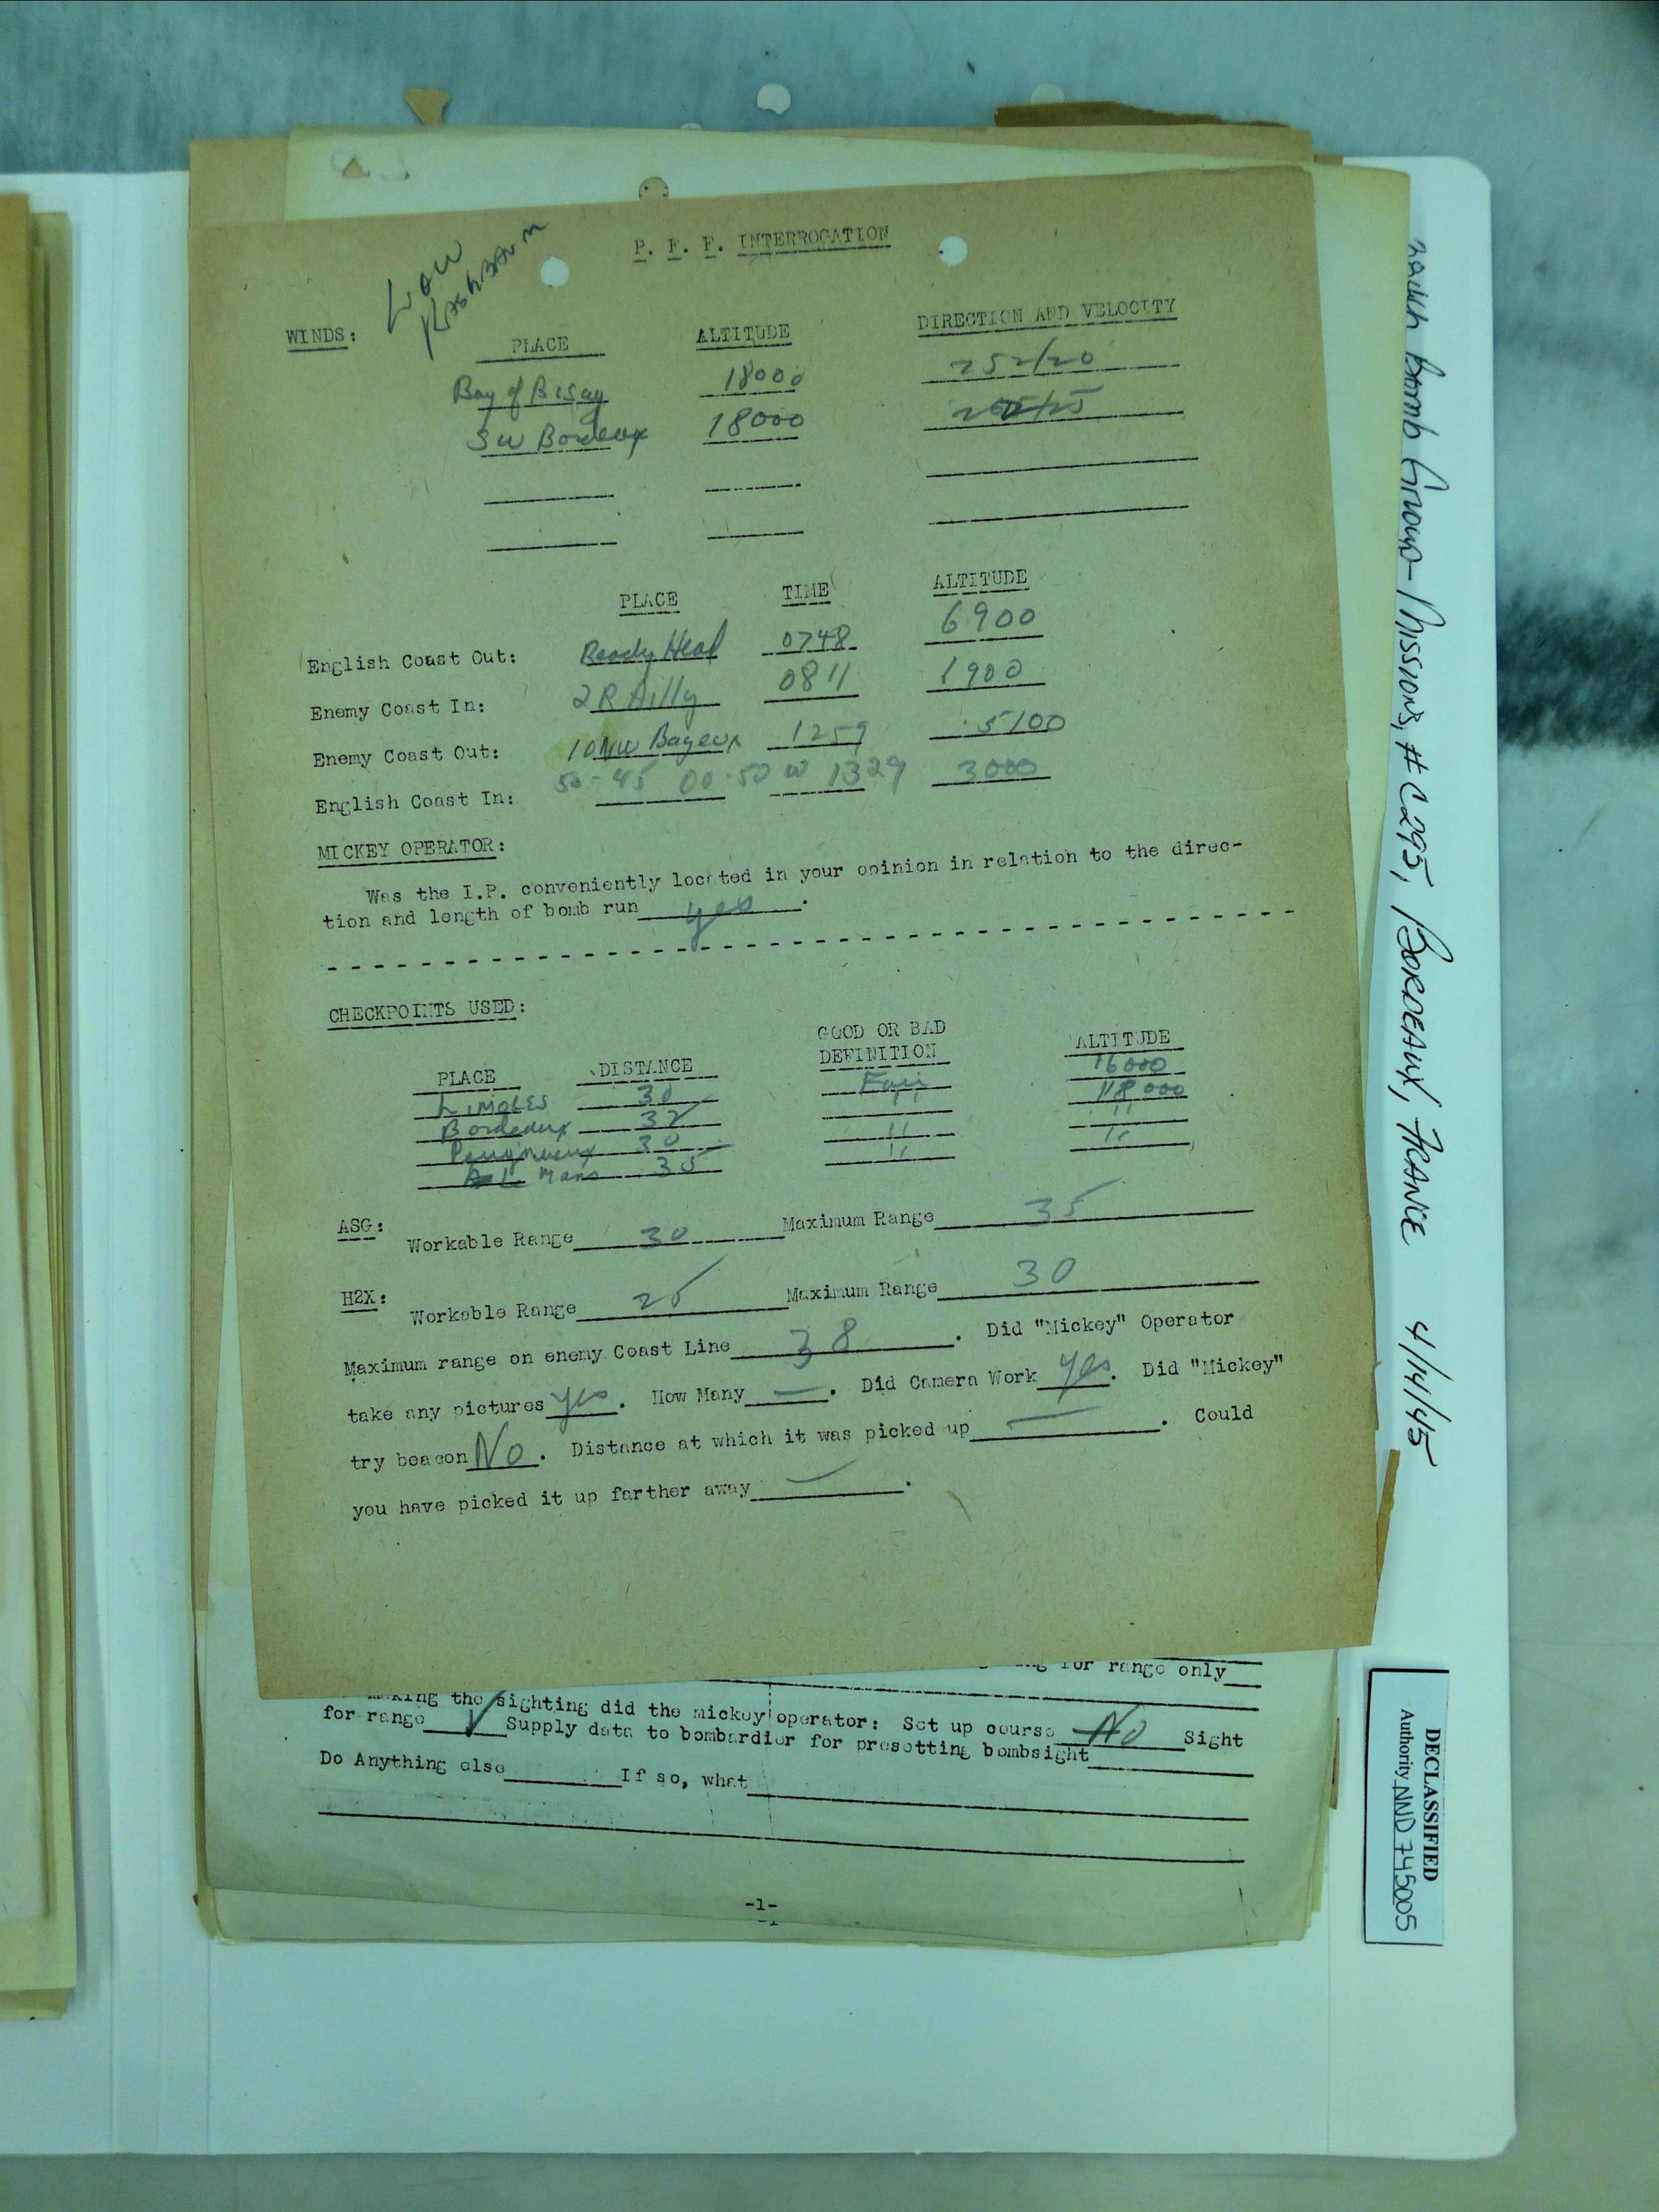 P. F. F. INTERROGATION
Low
WINDS:
PLACE ALTITUDE DIRECTION AND VELOCITY
Bay of Bisay 18000 252/20
SW Bordeux 18000
PLACE TIME ALTITUDE
English Coast Out: Beachy Head 0748 6900
Enemy Coast In: 2 R Ailly 0811 1900
Enemy Coast Out: 10 NW Bayeux 1259 5100
English Coast In: 50-45 00-50 W 1329 3000
MICKEY OPERATOR:
Was the I.P. conveniently located in your opinion in relation to the direc-
tion and length of bomb run yes.
CHECKPOINTS USED:
PLACE DISTANCE GOOD OR BAD DEFINITION ALTITUDE
LIMOGES 30 Fair 16000
Bordeaux 32 " 18000
30 " "
Le Mans 35 " "
ASG: Workable Range 30 Maximum Range 35
H2X: Workable Range 25 Maximum Range 30
Maximum range on enemy Coast Line 38. Did "Mickey" Operator
take any pictures yes. How Many —. Did Camera Work yes. Did "Mickey"
try beacon No. Distance at which it was picked up —. Could
you have picked it up farther away —.
for range only
making the sighting did the mickey operator: Set up course No Sight
for range ✓ Supply data to bombardier for presetting bombsight
Do Anything else If so, what
-1-
Bomb Group - Missions, #C295, BORDEAUX, FRANCE 4/14/45
DECLASSIFIED
Authority NND 745005